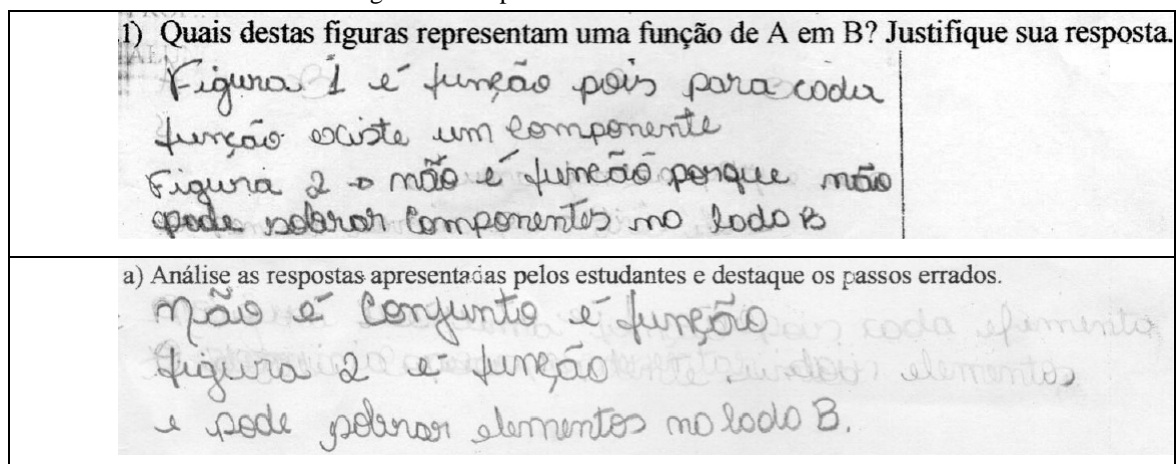 1) Quais destas figuras representam uma função de A em B? Justifique sua resposta.
Figura 1 é função pois para cada
função existe um componente
Figura 2 → não é função porque não
pode sobrar componentes no lado B
a) Análise as respostas apresentadas pelos estudantes e destaque os passos errados.
Não é conjunto é função
figura 2 é função
e pode sobrar elementos no lado B.